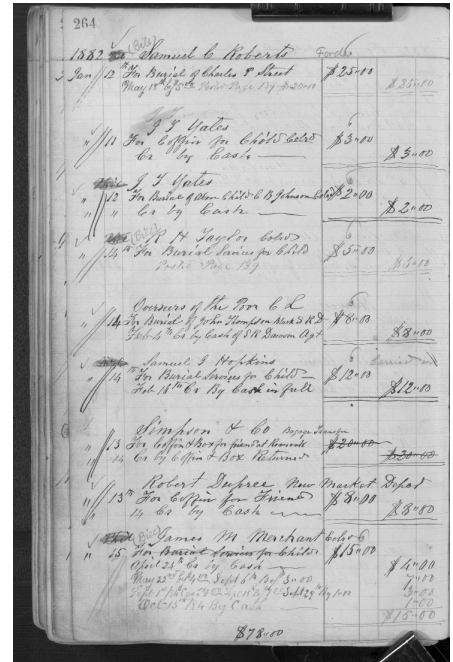 264
1882 (Bill) Samuel C Roberts
Jan 12th For Burial of Charles P Street $25.00
May 18th by 5.00 Posted Page 139 $20.00 $25.00
J T Yates
" 11 For Coffin for Child Cold $3.00
Cr by Cash $3.00
J T Yates
" 12 For Burial of Child C B Johnson Cold $2.00
" " Cr by Cash $2.00
(Bill) H Taylor Cold
" 14th For Burial Services for Child $5.00
Posted Page 139 $5.00
Overseers of the Poor C L
" 14 For Burial of John Thompson $8.00
Feb 4th Cr by Cash of S K Dawson Agt $8.00
Samuel J Hopkins
" 14th For Burial Services for Child $12.00
Feb 18th Cr By Cash in full $12.00
Simpson & Co
" 13 For Coffin & Box for friend at Roanoke $20.00
" 14 Cr by Coffin & Box Returned $20.00
Robert Dupree New Market Depot
" 13th For Coffin for Friend $8.00
14 Cr by Cash $8.00
(Bill) James M Merchant Cold
" 15 For Burial Services for Child $15.00
April 25th Cr by Cash $4.00
May 22nd Sept 6th By 3.00 7.00
Sept 29th By 1.00 3.00
Oct 15th By Cash 1.00
$15.00
$78.00